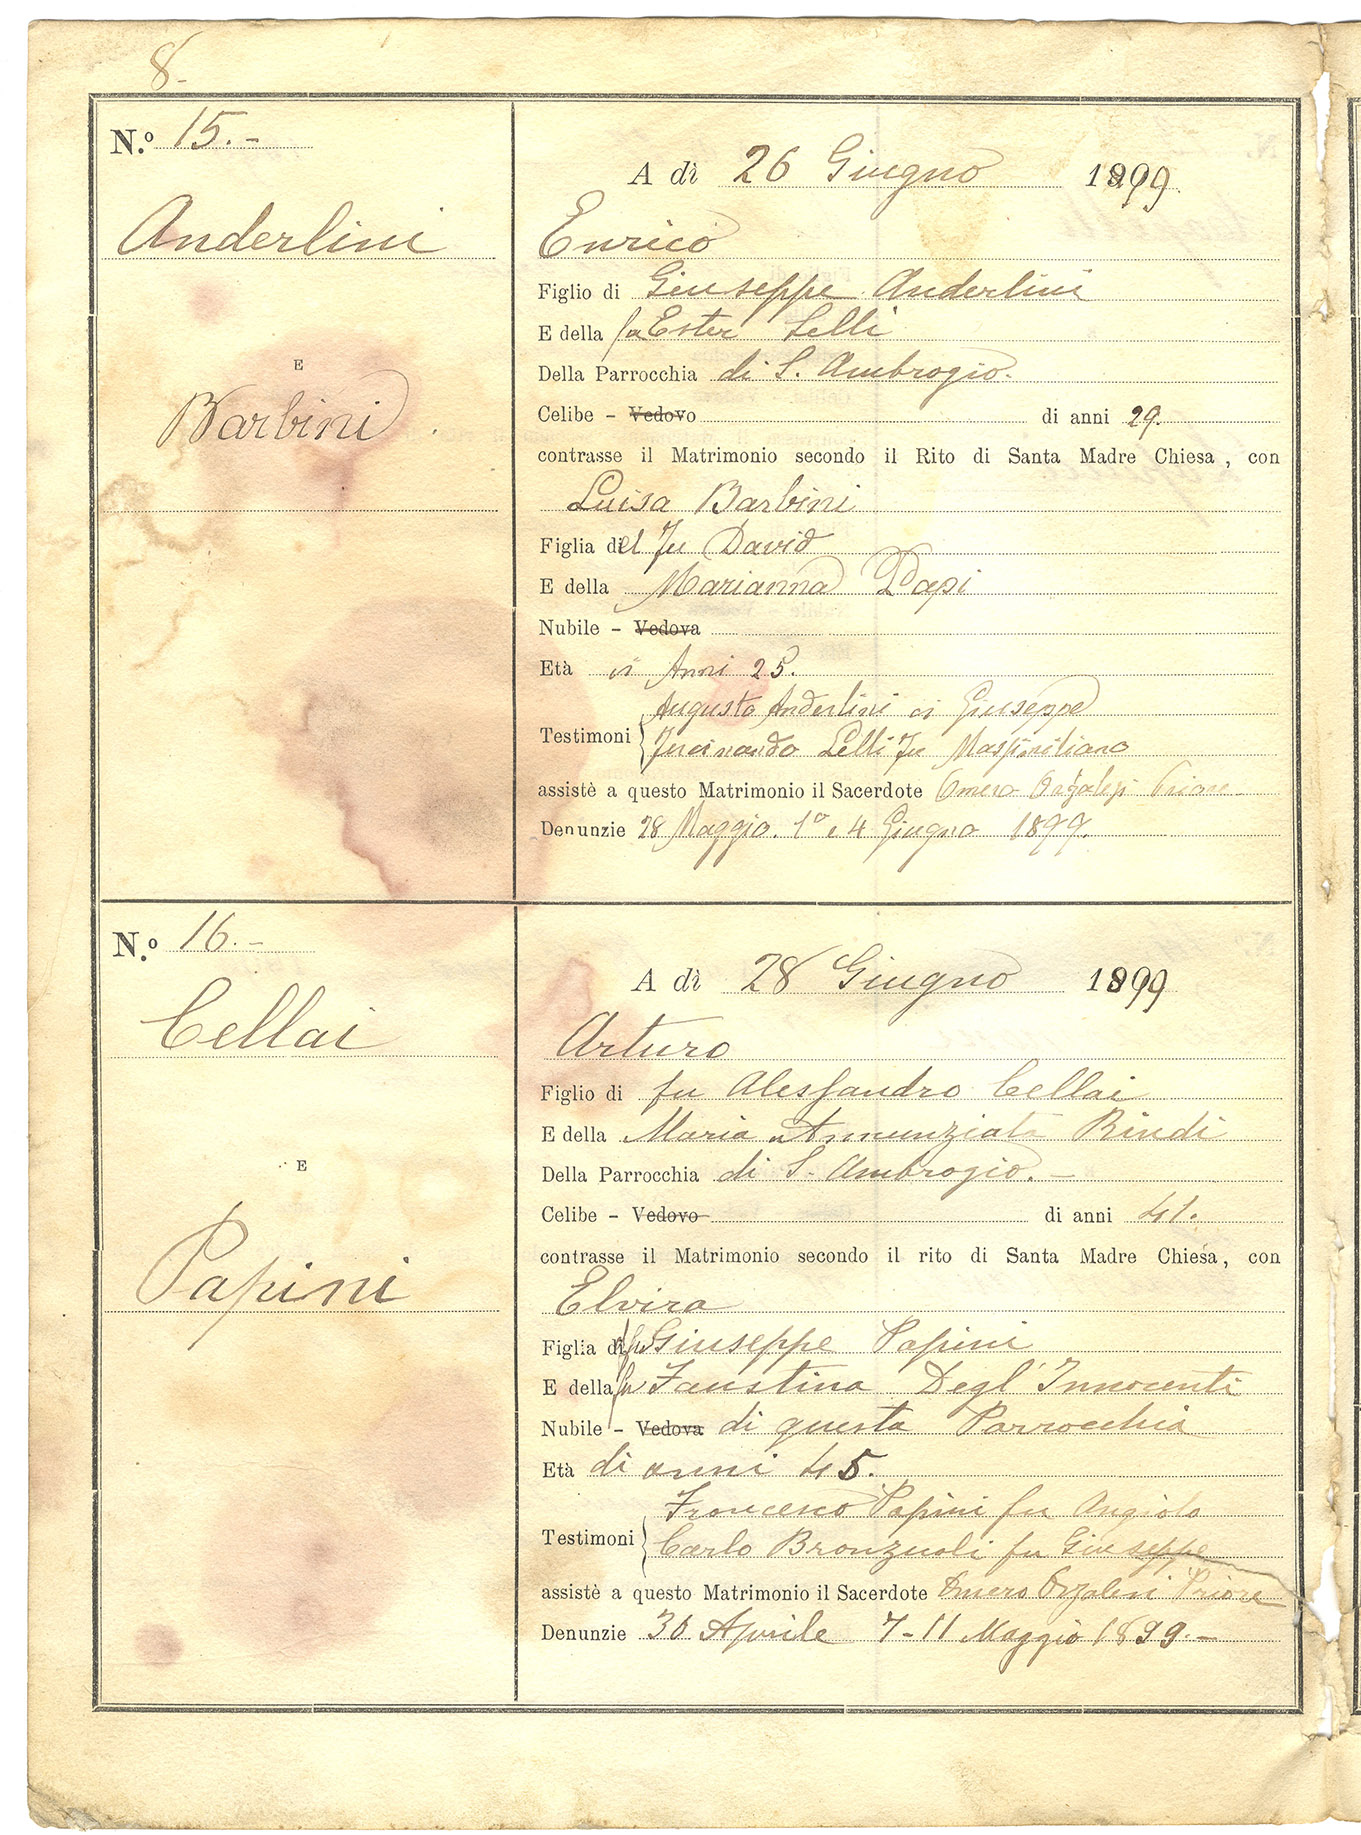 8-
N.º 15.-
Anderlini
E
Barbini
A dì 26 Giugno 1899.
Enrico
Figlio di Giuseppe Anderlini
E della fu Ester Lelli
Della Parrocchia di S. Ambrogio.
Celibe - Vedovo di anni 29.
contrasse il Matrimonio secondo il Rito di Santa Madre Chiesa, con
Luisa Barbini
Figlia del fu David
E della Marianna Papi
Nubile - Vedova
Età di Anni 25.
Augusto Anderlini di Giuseppe
Testimoni Ferdinando Lelli fu Massimiliano
assistè a questo Matrimonio il Sacerdote Omero Orzalesi Priore
Denunzie 28 Maggio. 1º e 4 Giugno 1899.
N.º 16.-
Cellai
E
Papini
A dì 28 Giugno 1899
Arturo
Figlio di fu Alessandro Cellai
E della Maria Annunziata Rindi
Della Parrocchia di S. Ambrogio.-
Celibe - Vedovo di anni 41.
contrasse il Matrimonio secondo il rito di Santa Madre Chiesa, con
Elvira
Figlia di fu Giuseppe Papini
E della fu Faustina Degl'Innocenti
Nubile - Vedova di questa Parrocchia
Età di anni 45.
Francesco Papini fu Angiolo
Testimoni Carlo Bronzuoli fu Giuseppe
assistè a questo Matrimonio il Sacerdote Omero Orzalesi Priore
Denunzie 30 Aprile 7-11 Maggio 1899.-